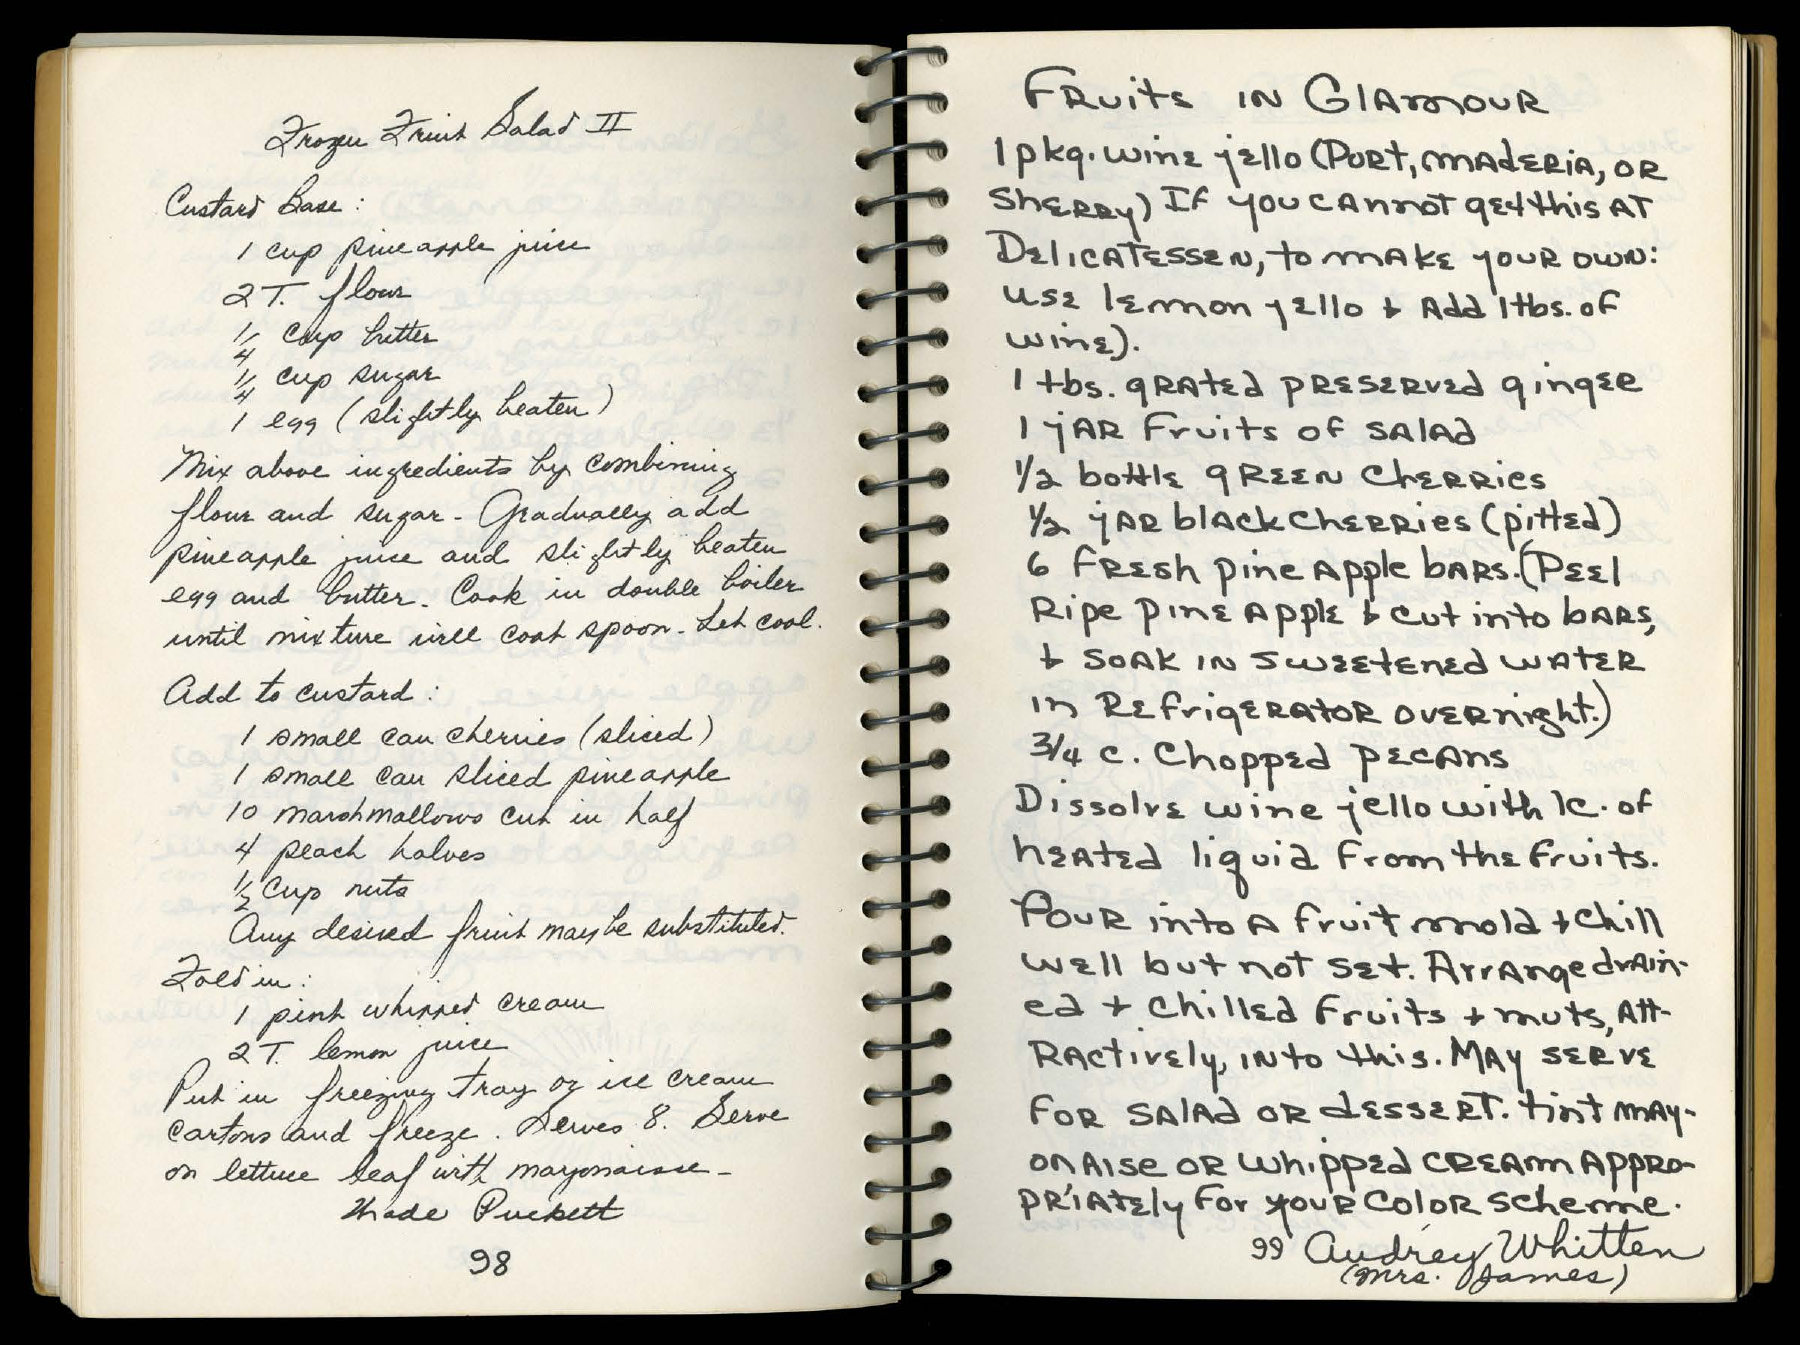 Frozen Fruit Salad II
Custard Base:
1 cup pineapple juice
2 T. flour
1/4 cup butter
1/4 cup sugar
1 egg (slightly beaten)
Mix above ingredients by combining
flour and sugar - Gradually add
pineapple juice and slightly beaten
egg and butter. Cook in double boiler
until mixture will coat spoon - Let cool.
Add to custard:
1 small can cherries (sliced)
1 small can sliced pineapple
10 marshmallows cut in half
4 peach halves
1/2 cup nuts
Any desired fruit may be substituted.
Fold in:
1 pint whipped cream
2 T. lemon juice
Put in freezing tray or ice cream
cartons and freeze. Serves 8. Serve
on lettuce leaf with mayonaisse -
Puckett
98
Fruits in Glamour
1 pkg. wine jello (Port, Maderia, or
Sherry) If you cannot get this at
Delicatessen, to make your own:
use lemon jello & Add 1 tbs. of
wine).
1 tbs. grated preserved ginger
1 jar fruits of salad
1/2 bottle green cherries
1/2 jar black cherries (pitted)
6 fresh pineapple bars. (Peel
Ripe pineapple & cut into bars,
& soak in sweetened water
in Refrigerator overnight.)
3/4 c. Chopped pecans
Dissolve wine jello with 1c. of
heated liquid from the fruits.
Pour into a fruit mold & chill
well but not set. Arrange drain-
ed & chilled fruits & nuts, Att-
ractively, into this. May serve
for salad or dessert. tint may-
onaise or whipped cream Appro-
priately for your color scheme.
99 Audrey Whitten
(Mrs. James)